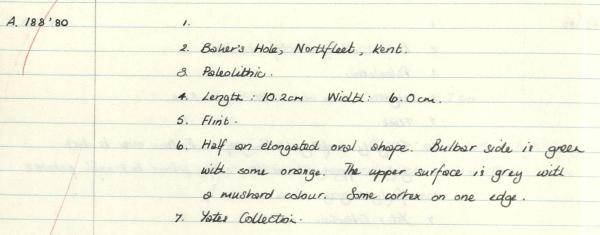 A. 188'80 1.
2. Baker's Hole, Northfleet, Kent.
3. Paleolithic.
4. Length : 10.2cm Width : 6.0cm.
5. Flint.
6. Half an elongated oval shape. Bulbar side is green
with some orange. The upper surface is grey with
a mustard colour. Some cortex on one edge.
7. Yates Collection.